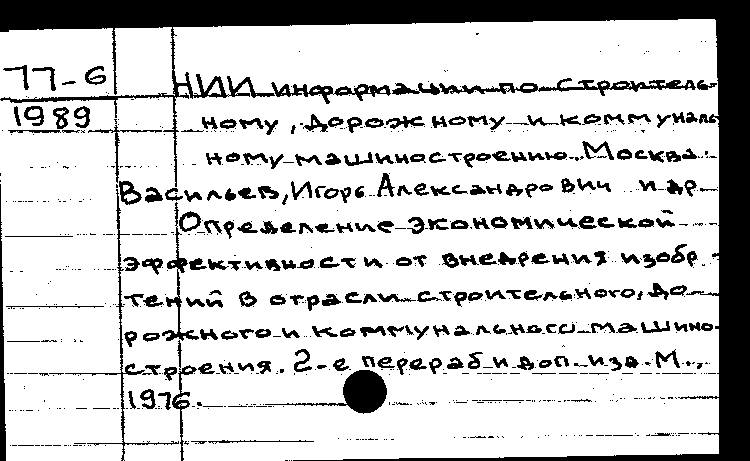 77-6
1989
НИИ информации по строитель-
ному, дорожному и коммуналь
ному машиностроению. Москва.
Васильев, Игорь Александрович и др.
Определение экономической
эффективности от внедрения изобр-
тений в отрасли строительного, до-
рожного и коммунального машино-
строения. 2-е перераб и доп. изд. М.,
1976.